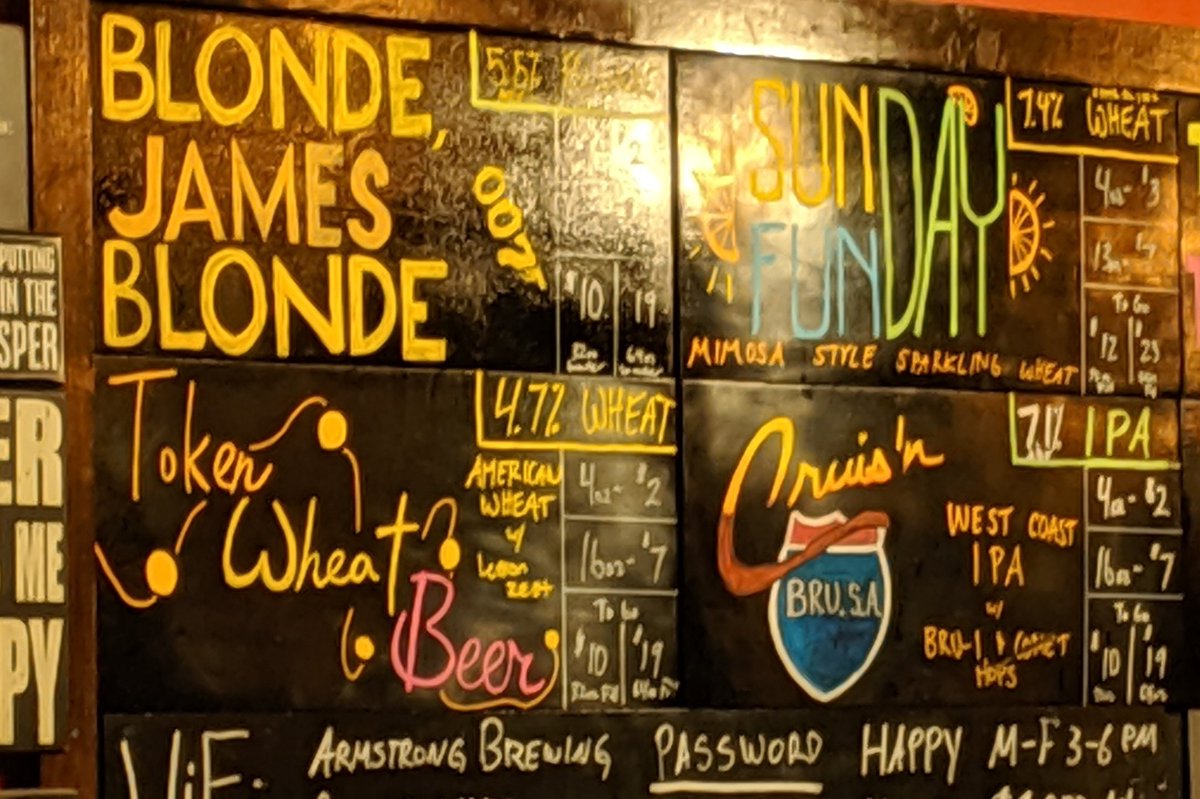 BLONDE,
JAMES
BLONDE
5.5%
007
$10 19
SUN
FUN
DAY
7.4% WHEAT
4oz- $3
To Go
$12 $23
MIMOSA STYLE SPARKLING WHEAT
Token
Wheat
Beer
4.7% WHEAT
AMERICAN
WHEAT
w/
lemon
zest
4oz- $2
16oz- $7
To Go
$10 $19
Cruis'n
BRU.S.A
7.1% IPA
WEST COAST
IPA
w/
BRU-1 & COMET
HOPS
4oz- $2
16oz- $7
To Go
$10 $19
PUTTING
IN THE
SPER
ER
ME
PY
WiFi: ARMSTRONG BREWING PASSWORD HAPPY M-F 3-6 PM